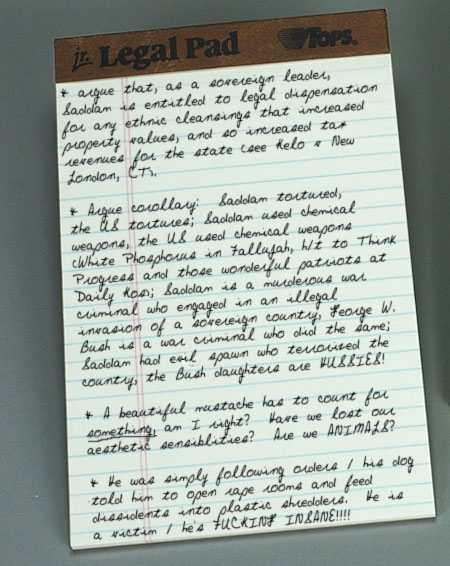 jr. Legal Pad TOPS®
* argue that, as a sovereign leader,
Saddam is entitled to legal dispensation
for any ethnic cleansings that increased
property values, and so increased tax
revenues for the state (see Kelo v New
London, CT).
* Argue corollary: Saddam tortured,
the US tortures; Saddam used chemical
weapons, the US used chemical weapons
(White Phosphorus in Fallujah, h/t to Think
Progress and those wonderful patriots at
Daily Kos); Saddam is a murderous war
criminal who engaged in an illegal
invasion of a sovereign country, George W.
Bush is a war criminal who did the same;
Saddam had evil spawn who terrorized the
country, the Bush daughters are HUSSIES!
* A beautiful mustache has to count for
something, am I right? Have we lost our
aesthetic sensiblities? Are we ANIMALS?
* He was simply following orders / his dog
told him to open rape rooms and feed
dissidents into plastic shredders. He is
a victim / he's FUCKING INSANE!!!!